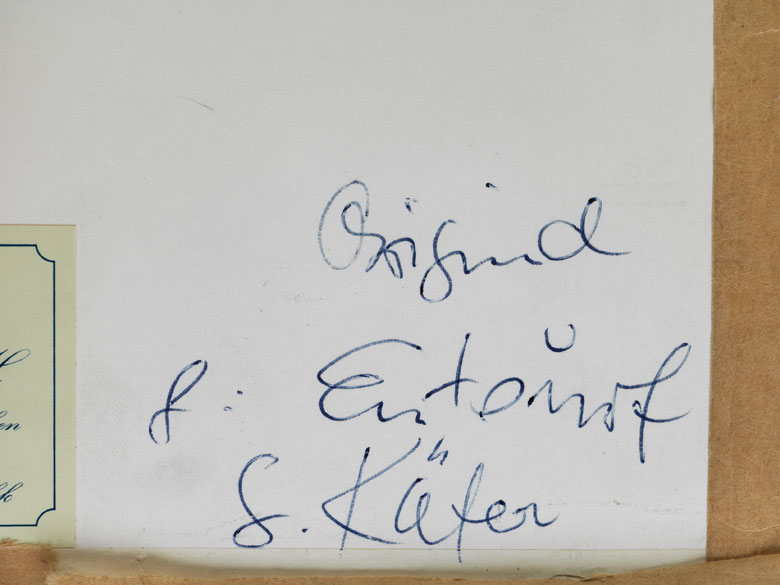 Original
f: Entwurf
Käfer